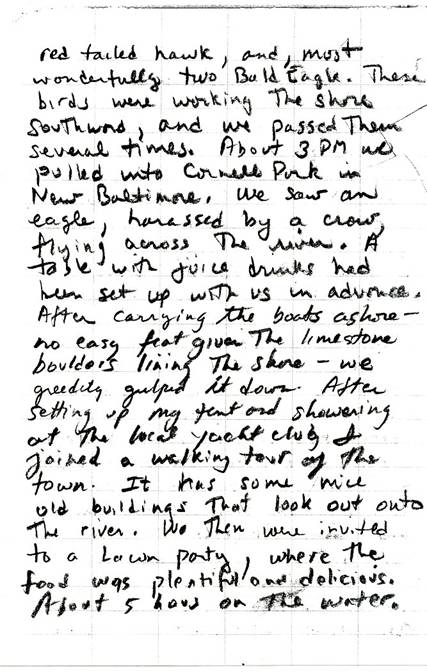 red tailed hawk, and, most
wonderfully two Bald Eagle. These
birds were working The shore
Southward, and we passed Them
several times. About 3 PM we
pulled into Cornell Park in
New Baltimore. We saw an
eagle, harassed by a crow,
flying across The river. A
table with juice drinks had
been set up with us in advance.
After carrying the boats ashore –
no easy feat given The limestone
boulders lining The shore – we
greedily gulped it down. After
setting up my tent and showering
at The local yacht club I
joined a walking tour of the
town. It has some nice
old buildings That look out onto
The river. We Then were invited
to a Lawn party, where the
food was plentiful and delicious.
About 5 hours on The water.